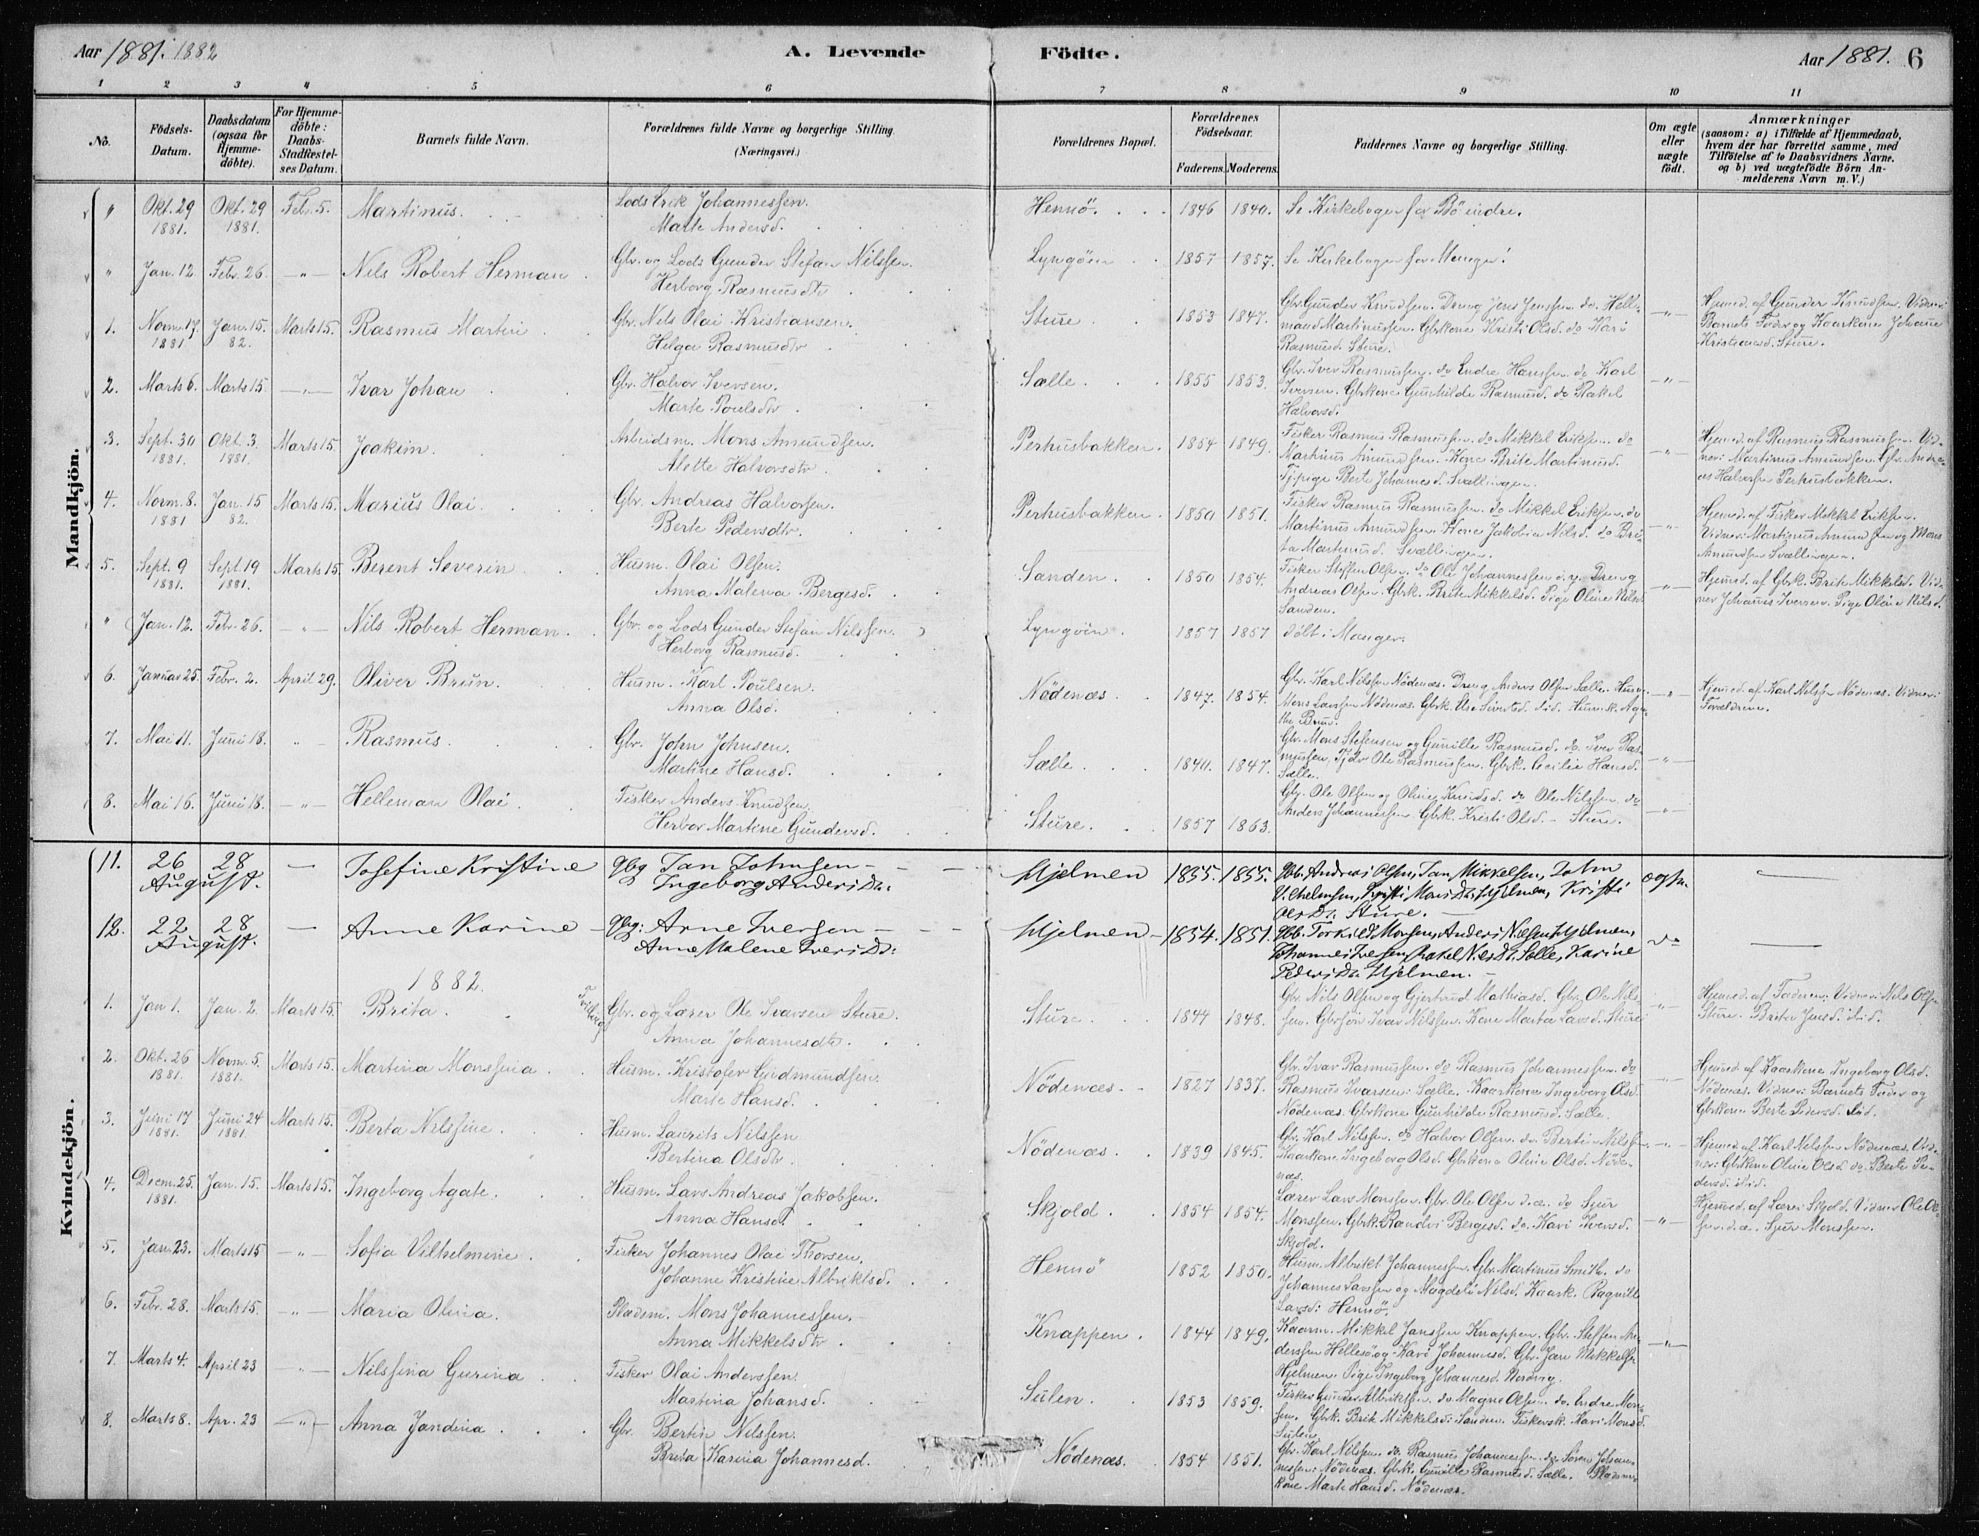 Aar 1881. 1882
A. Levende
Födte.
Aar 1881. 6
1 2 3 4 5 6 7 8 9 10 11
No.
Födsels-Datum.
Daabsdatum (ogsaa för Hjemme-döbte).
For Hjemme-döbte: Daabs-Stadfæstel-ses Datum.
Barnets fulde Navn.
Forældrenes fulde Navne og borgerlige Stilling. (Næringsvei.)
Forældrenes Bopæl.
Forældrenes Födselsaar.
Faderens. Moderens.
Faddernes Navne og borgerlige Stilling.
Om ægte eller uægte födt.
Anmærkninger
(saasom: a) i Tilfælde af Hjemmedaab, hvem der har forrettet samme, med Tilföielse af to Daabsvidners Navne. og b) ved uægtefödte Börn An-melderens Navn m. V.)
Mandkjön.
" Okt. 29 1881. Okt. 29 1881. Febr. 5. Martinus. Lods Erik Johannessen. Marte Andersd. Hennö. 1846 1840. Se Kirkebogen for Bö indre.
" Jan. 12. Febr. 26. -"- Nils Robert Herman. Gbr. og Lods Gunder Stefan Nilssen. Herborg Rasmusdtr. Lyngöin 1857 1857. Se Kirkebogen for Manger!
1. Novm. 17. 1881 Jan. 15. 82. Marts 15. Rasmus Martin Gbr. Nils Olai Kristiansen. Helga Rasmusdtr Sture 1853 1847. Gbr. Gunder Knudsen. Dreng Jens Jenssen. do Hell-
mand Martinussen. Gbrkone Kristi Olsd. do Kari
Rasmusd. Sture. -"- Hjemd. af Gunder Knudsen. Vidner:
Barnets Fader og Kaarkone Johanne
Kristiansd. Sture.
2. Marts 6. Marts 15 -"- Ivar Johan Gbr. Halvor Iversen. Marte Poulsdtr. Sælle. 1855 1853. Gbr. Iver Rasmussen. do Endre Hanssen. do Karl
Iversen. Gbrkone Gunhilde Rasmusd. do Rakel
Halvorsd. -"-
3. Sept. 30 1881. Okt. 3. 1881. Marts 15. Joakim. Arbeidsm. Mons Amundsen. Alette Halvorsdtr. Perhusbakken. 1854 1849. Fisker Rasmus Rasmussen. do Mikkel Eriksen. do
Martinus Amundsen. Kone Brite Martinusd.
Tjpige Berte Johannesd. Svællingen. -"- Hjemd. af Rasmus Rasmussen. Vid-
ner: Martinus Amundsen. Gbr. Andre-
as Halvorsen Perhusbakken.
4. Novm. 8. 1881 Jan. 15 82. Marts 15. Marius Olai. Gbr. Andreas Halvorsen. Berte Pedersdtr. Perhusbakken. 1850 1851. Fisker Rasmus Rasmussen. do Mikkel Eriksen. do
Martinus Amundsen. Kone Jakobia Nilsd. do Bri-
ta Martinusd. Svællingen. -"- Hjemd. af Fisker Mikkel Eriksen.
Vidner: Martinus Amundsen og Mons
Amundsen Svællingen.
5. Sept. 9 1881. Sept. 19 1881. Marts 15. Berent Severin Husm. Olai Olsen. Anna Malena Bergesd. Sanden. 1850 1854. Fisker Steffen Olsen. do Ole Johannessen d.y. Dreng
Andreas Olsen. Gbrk. Brite Mikkelsd. Pige Oline Nilsd.
Sanden. -"- Hjemd. af Gbrk. Brite Mikkelsd. Vid-
ner Johannes Iversen. Pige Oline Nilsd.
" (Jan. 12. Febr. 26. -"- Nils Robert Herman. Gbr. og Lods Gunder Stefan Nilssen.) Herborg Rasmusd. Lyngöin. 1857 1857 döbt i Manger.
6. Januar 25. Febr. 2. April 29. Oliver Brun. Husm. Karl Poulsen. Anna Olsd. Nödenæs 1847. 1854. Gbr. Karl Nilssen Nödenæs. Dreng Anders Olsen Sælle. Husm.
Mons Larssen Nödenæs. Gbrk. Sivertsd. ibid. Husmk. Aga-
the Brun. -"- Hjemd. af Karl Nilssen Nödenæs. Vidner:
Forældrene.
7. Mai 11. Juni 18. "- Rasmus. Gbr. John Johnsen. Martine Hansd. Sælle. 1840. 1847. Gbr. Mons Stefensen og Gunille Rasmusd. do. Iver Ras-
mussen. Ole Rasmussen. Gbrk. Cecilie Hansd.
Sælle. -"-
8. Mai 16. Juni 18. -"- Helleman Olai. Fisker Anders Knudsen. Herbor Martine Gundersd. Sture. 1857 1863. Gbr. Ole Olsen og Oline Knudsd. do Ole Nilssen. do
Anders Johannessen. Gbrk. Kristi Olsd. - Sture. -"-
Kvindekjön.
11. 26 August. 28 — Josefine Kristine Gbg Jan Johnsen — Ingeborg Anders Dr: Hjelmen 1855. 1855. Gbr. Anders Olsen, Jan Mikkelsen, John
Vilhelmsen, Kristi Mons Dr. Hjelmen, Kristi
Ols Dr. Sture. — ægte. —
12. 22 August. 28 — Anne Karine — Gbg: Arne Iversen — Anne Malene Ivers Dr: Hjelmen 1854. 1851. Gbr. Torkild Monsen, Anders Nilsen Hjelmen,
Johannes Iversen, Rakel Nils Dr. Sælle, Karine
Peders Dr. Hjelmen. — do —
1882.
1. Jan 1. Jan. 2. Marts 15. Brita. Tvilling Gbr. og Lærer Ole Ivarsen Sture. Anna Johannesdtr. Sture. 1844 1848. Gbr. Nils Olsen og Gjertrud Mathiasd. Gbr. Ole Nils-
sen. Gbrsön Ivar Nilssen. Kone Marta Larsd. Sture. -"- Hjemd. af Faderen. Vidner: Nils Olsen
Sture. Brita Jensd. ibid.
2. Okt. 26 1881. Novm. 5. 1881. Marts 15. Martina Monssina. Husm. Kristofer Gudmundsen. Marte Hansd. Nödenæs. 1827 1837. Gbr. Ivar Rasmussen. do Rasmus Johannessen. do
Rasmus Ivarsen. Sælle. Kaarkone Ingeborg Olsd.
Nödenæs. Gbrkone Gunhilde Rasmusd. Sælle. -"- Hjemd. af Kaarkone Ingeborg Olsd.
Nödenæs. Vidner: Barnets Fader og
Gbrkone Berte Pedersd. ibid.
3. Juni 17 1881. Juni 24 1881. Marts 15. Berta Nilssine. Husm. Laurits Nilssen. Bertina Olsdtr. Nödenæs. 1839 1845. Gbr. Karl Nilssen. do Halvor Olsen. do Bertin Nilssen
Kaarkone Ingeborg Olsd. Gbrkone Oline Olsd. Nöde-
næs. -"- Hjemd. af Karl Nilssen Nödenæs. Vid-
ner: Gbrkone Oline Olsd. do Berte Pe-
dersd. ibid.
4. Decm. 25. 1881. Jan. 15. Marts 15. Ingeborg Agate. Husm. Lars Andreas Jakobsen. Anna Hansd. Skjold. 1854 1854. Lærer Lars Monssen. Gbr. Ole Olsen d.æ. do Sjur
Monssen. Gbrk. Randvi Bergesd. do. Kari Iversd.
Skjold. -"- Hjemd. af Lærer Skjold. Vidner Ole Ol-
sen d.æ. Sjur Monssen.
5. Jan. 23. Marts 15 -"- Sofia Vilhelmine. Fisker Johannes Olai Thorsen. Johanne Kristine Albriktsd. Hennö 1852 1850. Husm. Albrikt Johannessen. Gbr. Martinus Smith. do
Johannes Larssen og Magdele Nilsd. Kaark. Ragnille
Larsd: Hennö.
6. Febr. 28. Marts 15. -"- Maria Olina. Pladsm. Mons Johannessen. Anna Mikkelsdtr. Knappen. 1844 1849. Kaarm. Mikkel Janssen Knappen. Gbr. Steffen An-
derssen Hellesö og Kari Johannesd. Gbr. Jan Mikkelsen
Hjelmen. Pige Ingeborg Johannesd. -"-
7. Marts 4. April 23 -"- Nilssina Gurina Fisker Olai Anderssen. Martina Johansd. Sulen. 1853 1859. Fisker Gunder Albriktsen. do Magne Olsen. do. Endre Mon-
sen. Gbrk. Brit Mikkelsd: Sanden. Fiskersk. Kari Monsd.
Sulen.
8. Marts 8. Apr. 23 -"- Anna Jandina Gbr. Bertin Nilssen. Berta Karina Johannesd. Nödenæs. 1854 1851. Gbr. Karl Nilssen. do. Rasmus Johannessen. do. Sören Johan-
nessen: Nödenæs. Gbrk. Gunille Rasmusd. Sælle. Pladsm.-
kone Marte Hansd. Nödenæs.